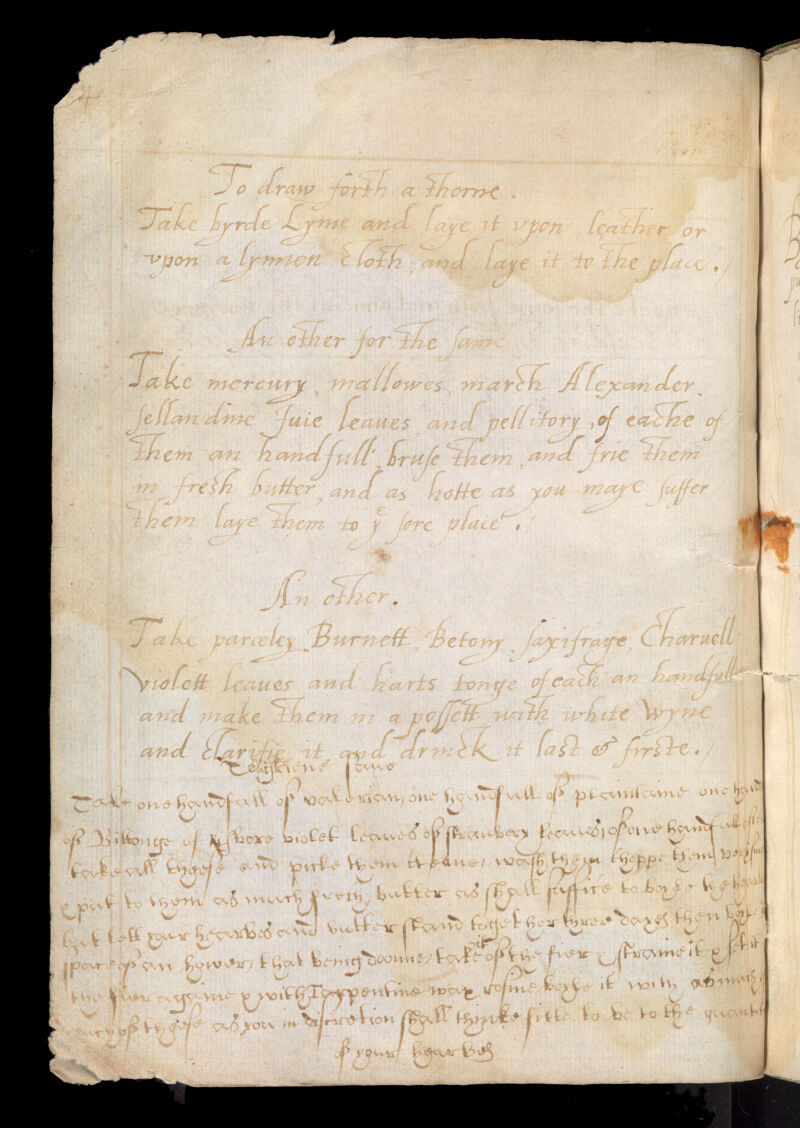 To draw forth a thorne.
Take byrde Lyme and laye it vpon leather or
vpon a lynnen cloth, and laye it to the place./
An other for the same
Take mercury, mallowes, march Alexander,
sellandine Iuie leaues, and pellitory, of eache of
them an handfull, bruse them, and frie them
in fresh butter, and as hotte as you maye suffer
them laye them to yͤ sore place./
An other.
Take parceley, Burnett, Betony, saxifrage, Charuell
violett leaues and harts tonge of each an handfull
and make them in a possett with white Wyne
and clarifie it and drinck it last & firste./
salue
Take one handfull of valerian, one handfull of plaintaine one hand
of Bittonye of violet leaues of strawbery leaues, of one handfull
take all theese and picke them cleane, wash them choppe them very
& put to them as much fresh butter as shall suffice to boyle the hearb
but lett your hearbes and butter stand together three dayes then boyle
space of an hower, that being doonne, take it of the fier & straine it & sett it
the fier againe & with Tarpentine wax rosine boyle it with as much
of theese as you in discretion shall thinke fitte to be to the quantit
of your hearbes